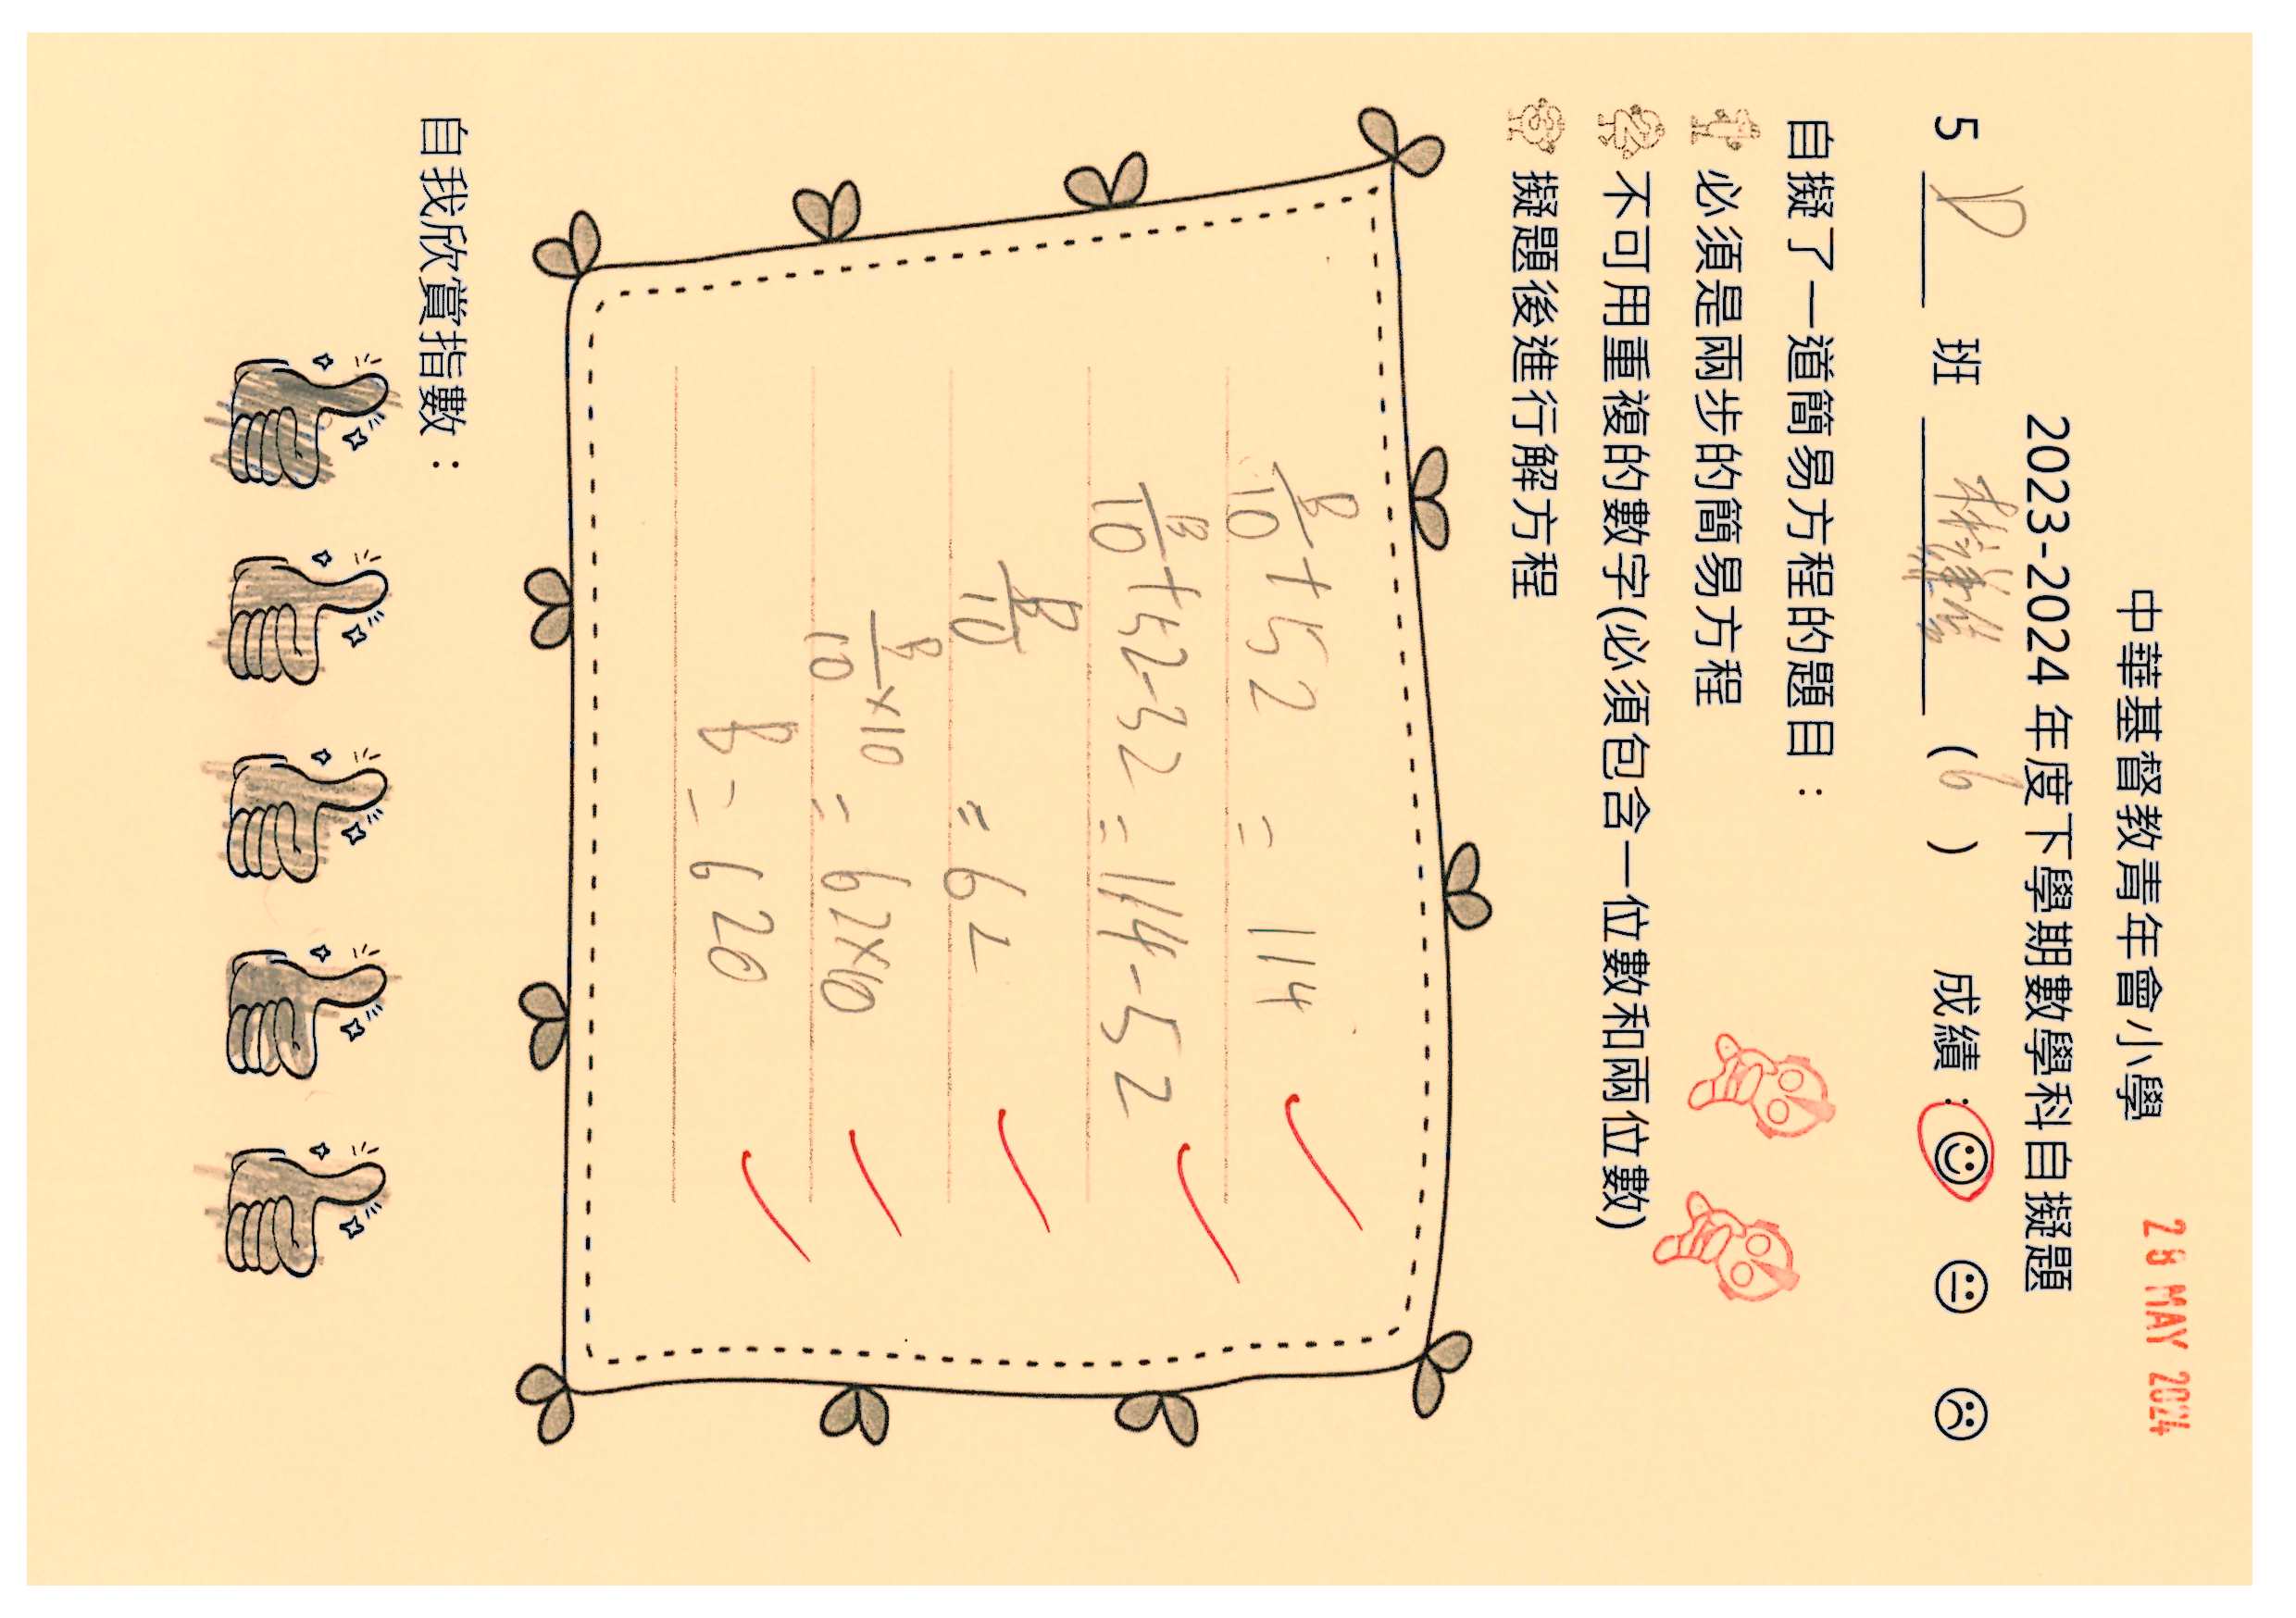 中華基督教青年會小學
28 MAY 2024
2023-2024 年度下學期數學科自擬題
5 D 班 (6) 成績：
自擬了一道簡易方程的題目：
1 必須是兩步的簡易方程
2 不可用重複的數字(必須包含一位數和兩位數)
3 擬題後進行解方程
B/10 + 52 = 114
B/10 + 52 - 52 = 114 - 52
B/10 = 62
B/10 × 10 = 62 × 10
B = 620
自我欣賞指數：